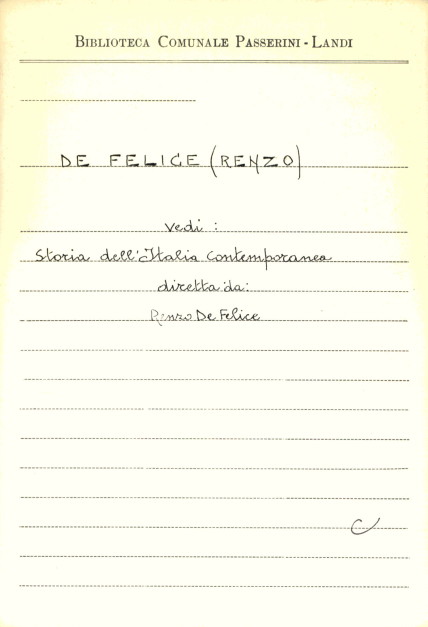 BIBLIOTECA COMUNALE PASSERINI - LANDI
DE FELICE (RENZO)
vedi :
Storia dell'Italia contemporanea
diretta da:
Renzo De Felice
C